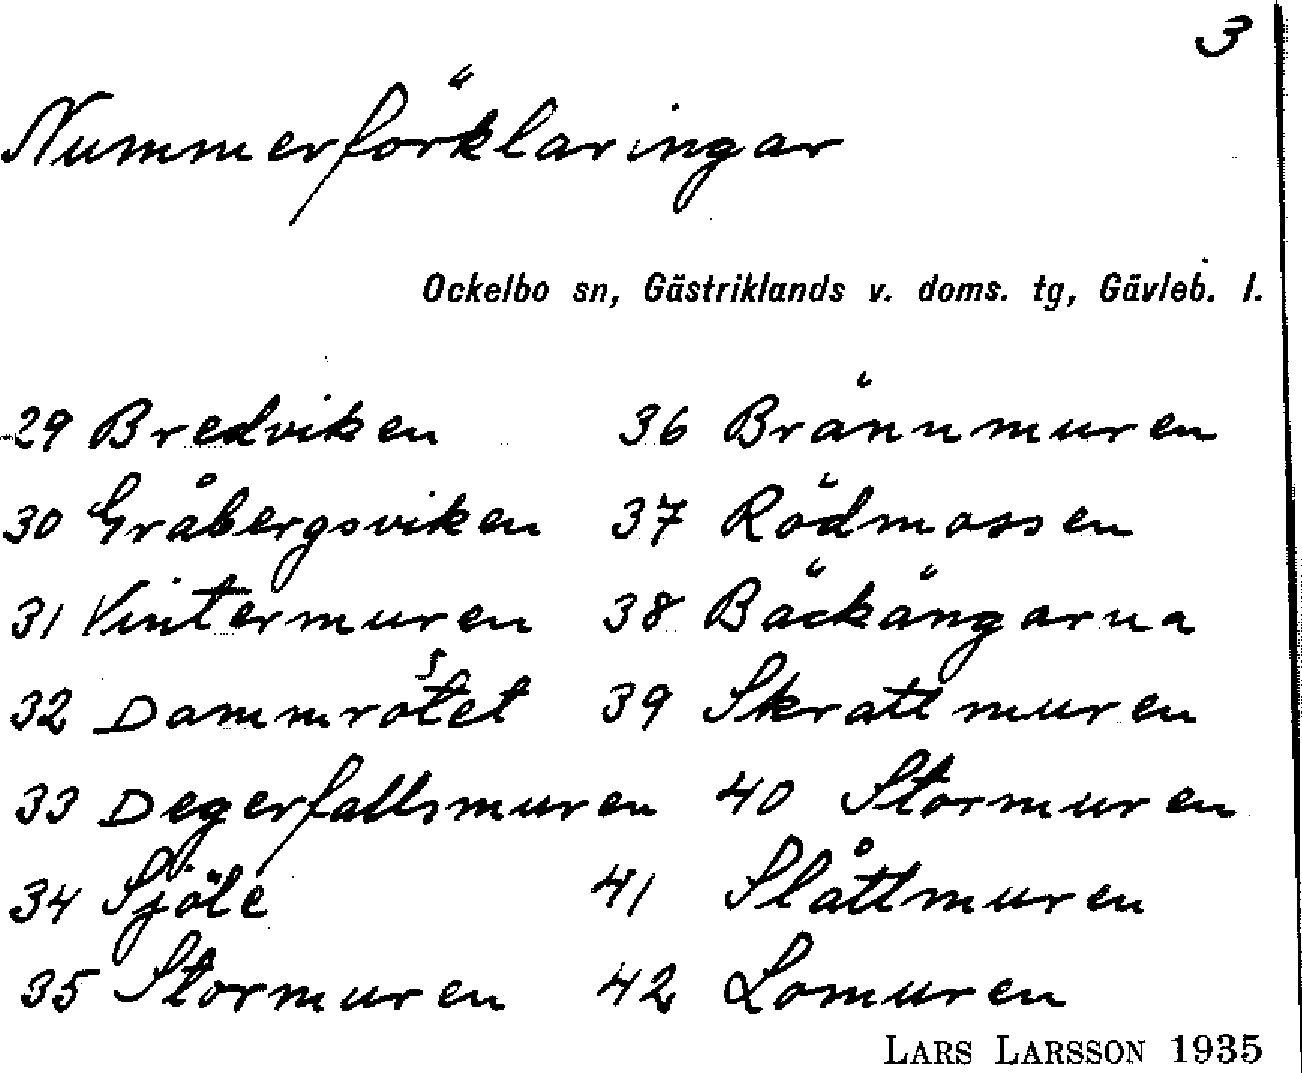 3
Nummerförklaringar
Ockelbo sn, Gästriklands v. doms. tg, Gävleb. l.
29 Bredviken 36 Brännmuren
30 Gråbergsviken 37 Rödmossen
31 Vintermuren 38 Bäckängarna
32 Dammrostet 39 Skrattmuren
33 Degerfallsmuren 40 Stormuren
34 Sjöle 41 Slåttmuren
35 Stormuren 42 Lomuren
LARS LARSSON 1935